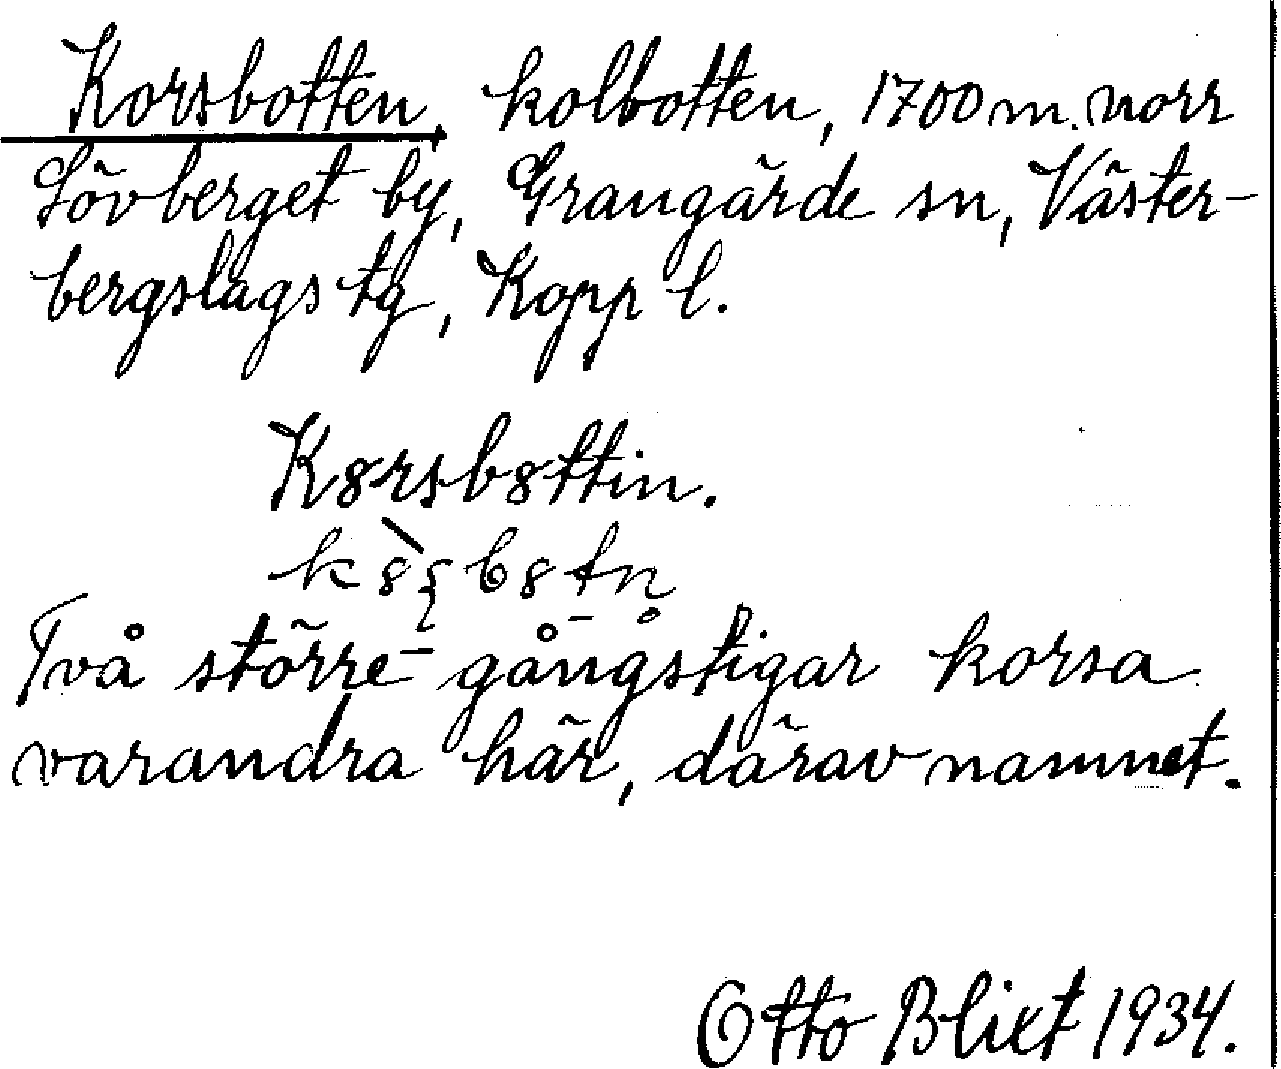 Korsbotten, kolbotten, 1700 m. norr
Lövberget by, Grangärde sn, Väster-
bergslags tg, Kopp l.
K8rsb8ttin.
Två större gångstigar korsa
varandra här, därav namnet.
Otto Blixt 1934.